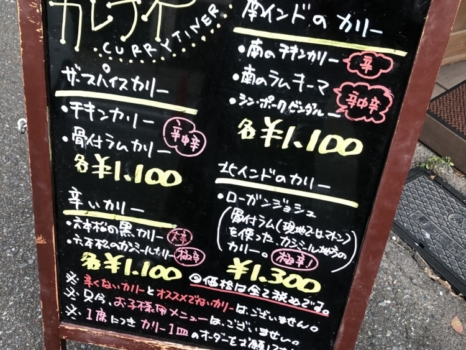 CURRYTINER
ザ・スパイスカリー
・チキンカリー
・骨付ラムカリー
各¥1.100
辛いカリー
・六本松の黒カリー 大辛
・六本松のカシミールカリー 極辛
各¥1.100
南インドのカリー
・南のチキンカリー 辛
・南のラムキーマ
各¥1.100
北インドのカリー
・ローガンジョシュ
を使った、カシミール地方の
カリー。 極辛!
¥1.300
価格は全て税込です。
※辛くないカリーとオススメでないカリーはございません。
※只今、お子様用メニューは、ございません。
※1席につきカリー1皿のオーダーをお願して